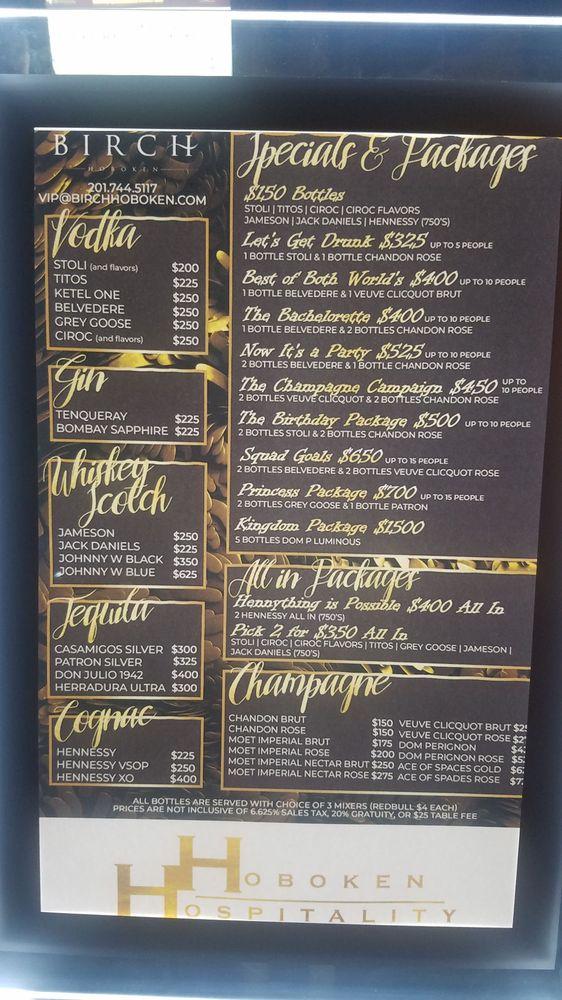 BIRCH
HOBOKEN
201.744.5117
VIP@BIRCHHOBOKEN.COM
Vodka
STOLI (and flavors) $200
TITOS $225
KETEL ONE $250
BELVEDERE $250
GREY GOOSE $250
CIROC (and flavors) $250
Gin
TENQUERAY $225
BOMBAY SAPPHIRE $225
Whiskey
Scotch
JAMESON $250
JACK DANIELS $225
JOHNNY W BLACK $350
JOHNNY W BLUE $625
Tequila
CASAMIGOS SILVER $300
PATRON SILVER $325
DON JULIO 1942 $400
HERRADURA ULTRA $300
Cognac
HENNESSY $225
HENNESSY VSOP $250
HENNESSY XO $400
Specials & Packages
$150 Bottles
STOLI | TITOS | CIROC | CIROC FLAVORS
JAMESON | JACK DANIELS | HENNESSY (750'S)
Let's Get Drunk $325 UP TO 5 PEOPLE
1 BOTTLE STOLI & 1 BOTTLE CHANDON ROSE
Best of Both World's $400 UP TO 10 PEOPLE
1 BOTTLE BELVEDERE & 1 VEUVE CLICQUOT BRUT
The Bachelorette $400 UP TO 10 PEOPLE
1 BOTTLE BELVEDERE & 2 BOTTLES CHANDON ROSE
Now It's a Party $525 UP TO 10 PEOPLE
2 BOTTLES BELVEDERE & 1 BOTTLE CHANDON ROSE
The Champagne Campaign $450 UP TO 10 PEOPLE
2 BOTTLES VEUVE CLICQUOT & 2 BOTTLES CHANDON ROSE
The Birthday Package $500 UP TO 10 PEOPLE
2 BOTTLES STOLI & 2 BOTTLES CHANDON ROSE
Squad Goals $650 UP TO 15 PEOPLE
2 BOTTLES BELVEDERE & 2 BOTTLES VEUVE CLICQUOT ROSE
Princess Package $700 UP TO 15 PEOPLE
2 BOTTLES GREY GOOSE & 1 BOTTLE PATRON
Kingdom Package $1500
5 BOTTLES DOM P LUMINOUS
All in Packages
Hennything is Possible $400 All In
2 HENNESSY ALL IN (750'S)
Pick 2 for $350 All In
STOLI | CIROC | CIROC FLAVORS | TITOS | GREY GOOSE | JAMESON |
JACK DANIELS (750'S)
Champagne
CHANDON BRUT $150
CHANDON ROSE $150
MOET IMPERIAL BRUT $175
MOET IMPERIAL ROSE $200
MOET IMPERIAL NECTAR BRUT $250
MOET IMPERIAL NECTAR ROSE $275
VEUVE CLICQUOT BRUT
VEUVE CLICQUOT ROSE
DOM PERIGNON
DOM PERIGNON ROSE
ACE OF SPACES GOLD
ACE OF SPADES ROSE
ALL BOTTLES ARE SERVED WITH CHOICE OF 3 MIXERS (REDBULL $4 EACH)
PRICES ARE NOT INCLUSIVE OF 6.625% SALES TAX, 20% GRATUITY, OR $25 TABLE FEE
HOBOKEN
HOSPITALITY